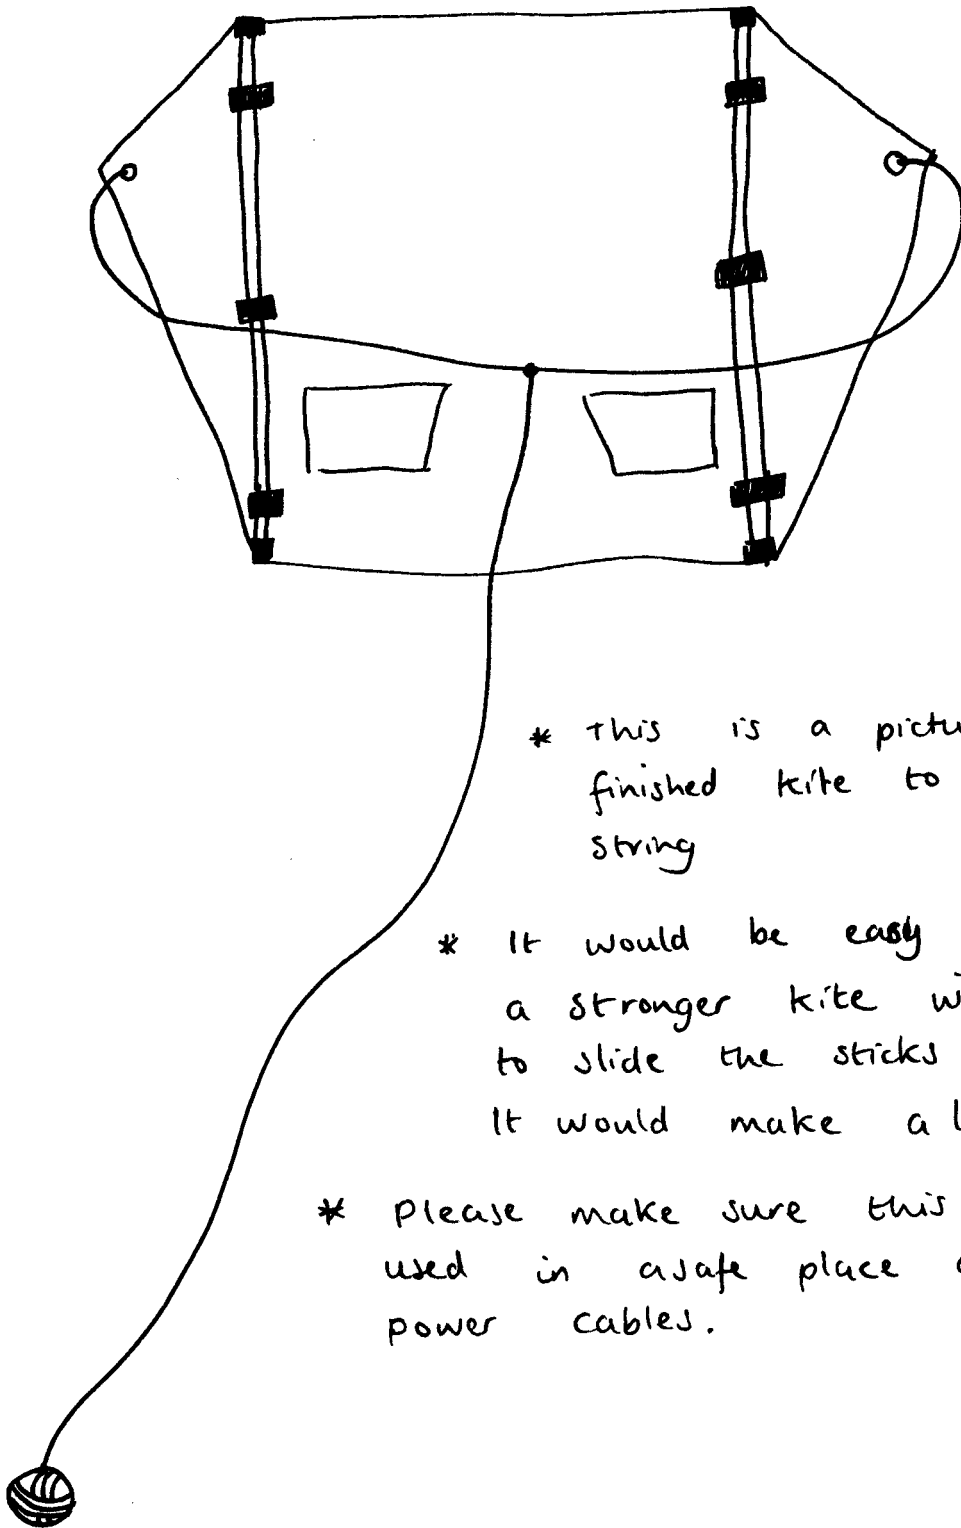 * This is a pictu
finished kite to
string
* It would be easy
a stronger kite wi
to slide the sticks
It would make a l
* Please make sure this
used in asafe place
power cables.